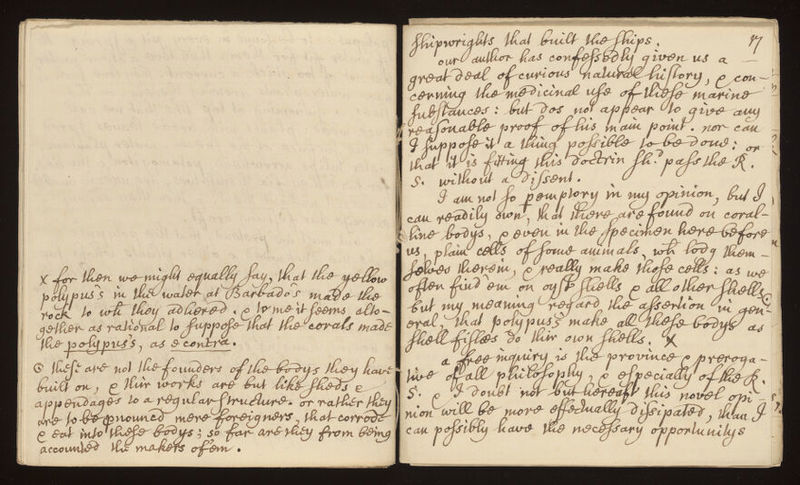 x for then we might equally say, that the yellow
polypus's in the water at Barbado's made the
rock to wh they adhered. & to me it seems alto-
gether as rational to suppose that the corals made
the polypus's, as e contra.
⊙ these are not the founders of the bodys they have
built on, & thir works are but like sheds &
appendages to a regular structure. or rather they
are to be pnounced mere foreigners, that corrode
& eat into these bodys; so far are they from being
accounted the makers of em.
17
shipwrights that built the ships.
our author has confessedly given us a
great deal of curious natural history, & con-
cerning the medicinal use of these marine
substances: but dos not appear to give any
reasonable proof of his main point. nor can
I suppose it a thing possible to be done: or
that it is fitting this doctrin shd. pass the R.
S. without a dissent.
I am not so pemptory in my opinion, but I
can readily own, that there are found on coral-
line bodys, & even in the specimen here before
us, plain cells of some animals, wh lodg them-
selves therein, & really make those cells: as we
often find em on oystr shells & all other shells ⊙
but my meaning regard the assertion in gen-
eral, that polypus's make all these bodys as
shell fishes do thir own shells. x
a free inquiry is the province & preroga-
tive of all philosophy, & especially of the R.
S. & I doubt not but hereaftr this novel opi-
nion will be more effectually dissipated, than I
can possibly have the necessary opportunitys